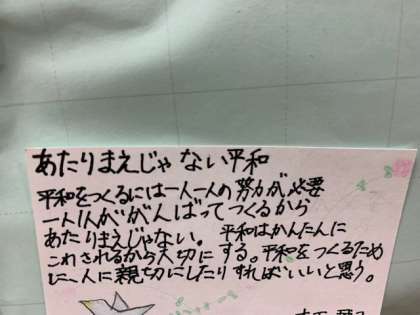 あたりまえじゃない平和
平和をつくるには一人一人の努力が必要
一人1人ががんばってつくるから
あたりまえじゃない。平和はかんたんに
こわされるから大切にする。平和をつくるため
に、人に親切にしたりすればいいと思う。